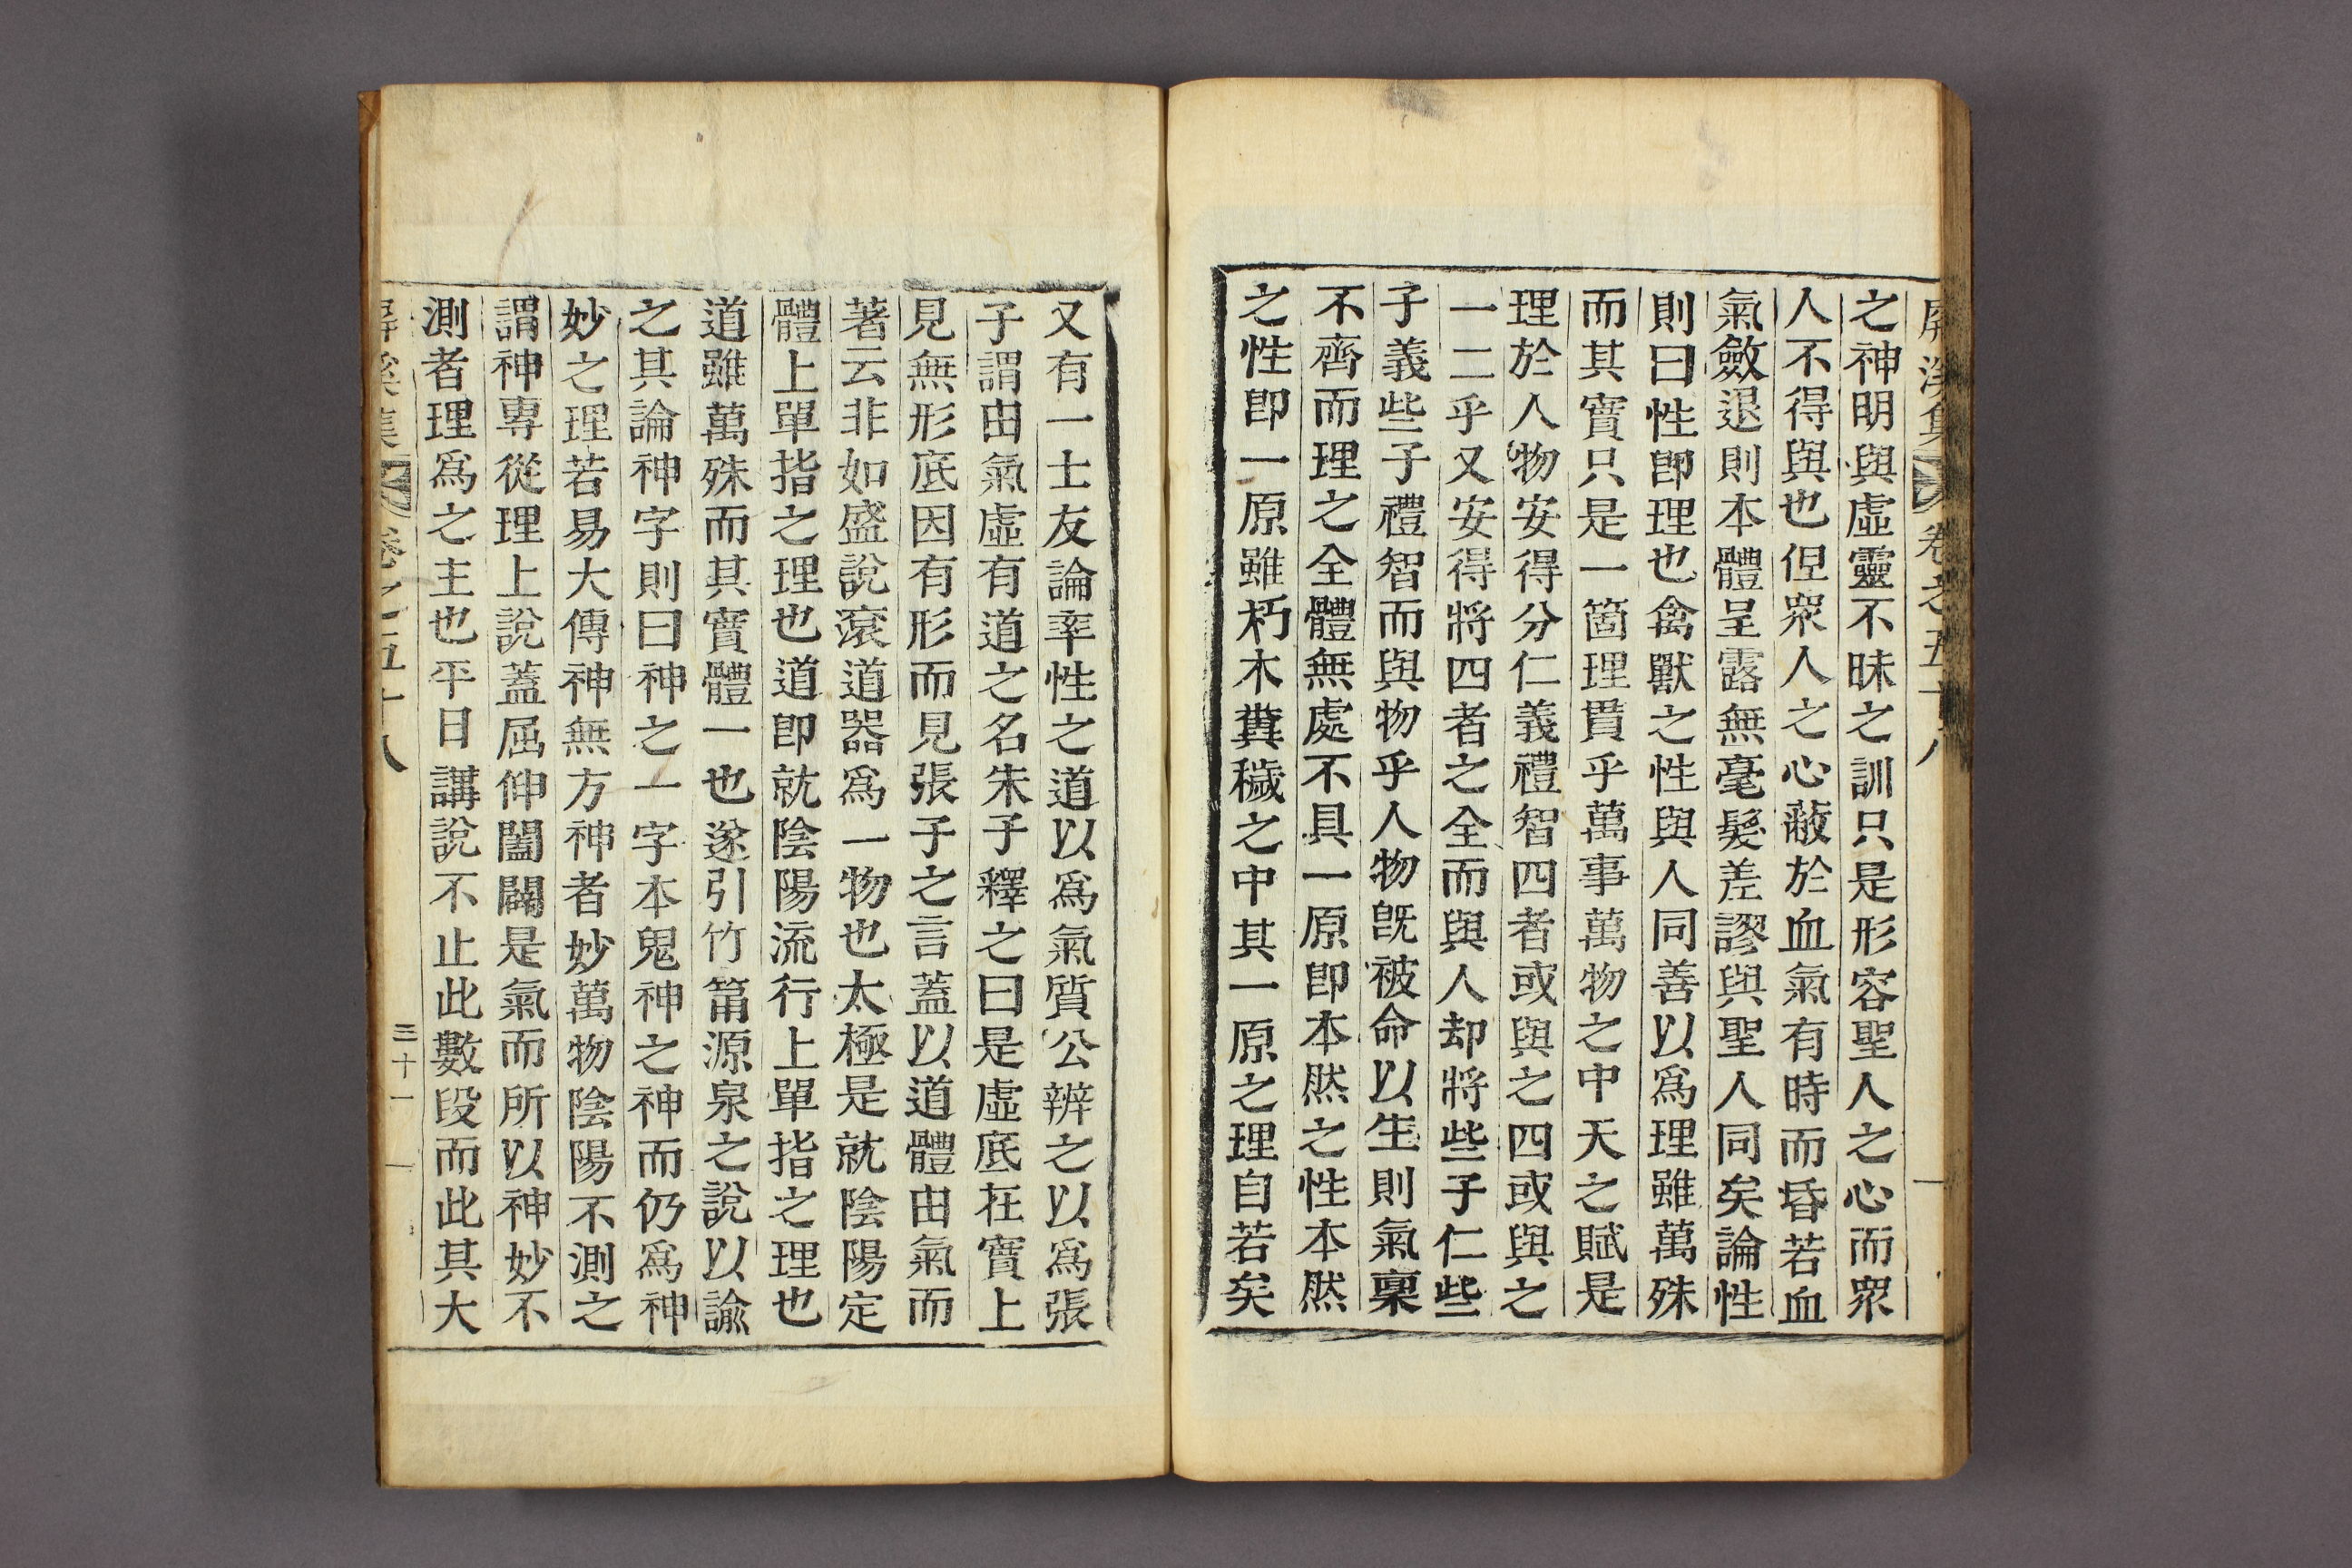 屏溪集 卷之五十八
之神明與虛靈不昧之訓只是形容聖人之心而衆
人不得與也但衆人之心蔽於血氣有時而昏若血
氣斂退則本體呈露無毫髮差謬與聖人同矣論性
則曰性卽理也禽獸之性與人同善以爲理雖萬殊
而其實只是一箇理貫乎萬事萬物之中天之賦是
理於人物安得分仁義禮智四者或與之四或與之
一二乎又安得將四者之全而與人却將些子仁些
子義些子禮智而與物乎人物旣被命以生則氣稟
不齊而理之全體無處不具一原卽本然之性本然
之性卽一原雖朽木糞穢之中其一原之理自若矣
又有一士友論率性之道以爲氣質公辨之以爲張
子謂由氣虛有道之名朱子釋之曰是虛底在實上
見無形底因有形而見張子之言蓋以道體由氣而
著云非如盛說滾道器爲一物也太極是就陰陽定
體上單指之理也道卽就陰陽流行上單指之理也
道雖萬殊而其實體一也遂引竹筩源泉之說以諭
之其論神字則曰神之一字本鬼神之神而仍爲神
妙之理若易大傳神無方神者妙萬物陰陽不測之
謂神專從理上說蓋屈伸闔闢是氣而所以神妙不
測者理爲之主也平日講說不止此數段而此其大
屏溪集 卷之五十八 三十一